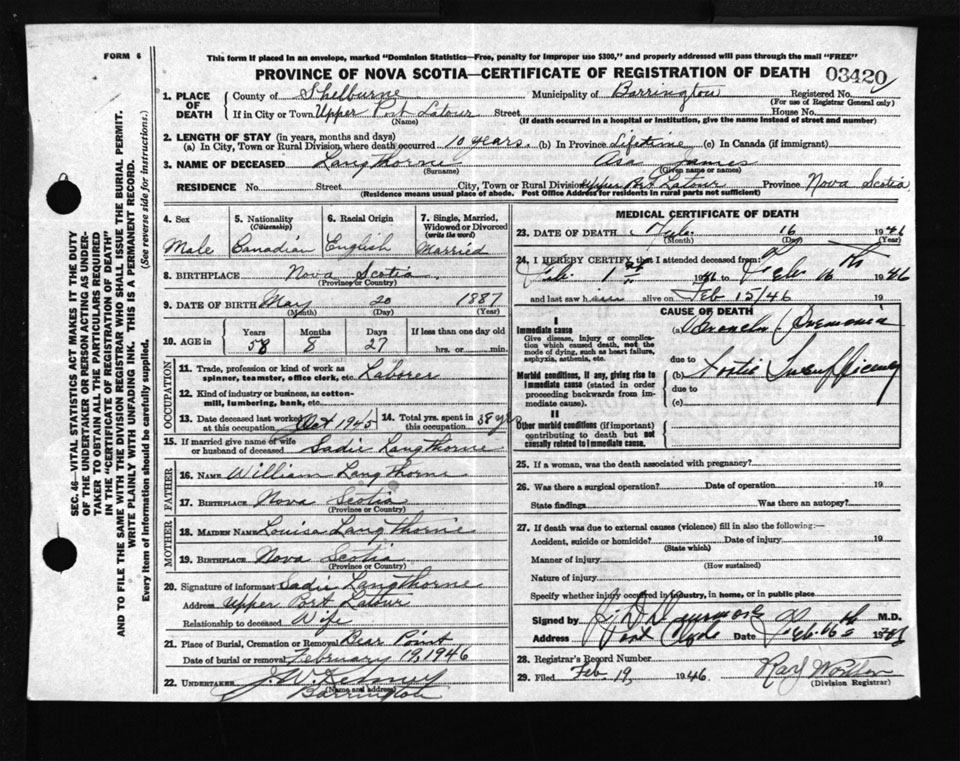 FORM 6
This form if placed in an envelope, marked "Dominion Statistics—Free, penalty for improper use $300," and properly addressed will pass through the mail "FREE"
PROVINCE OF NOVA SCOTIA—CERTIFICATE OF REGISTRATION OF DEATH 03420
1. PLACE OF DEATH County of Shelburne Municipality of Barrington Registered No.
(For use of Registrar General only)
If in City or Town Upper Port Latour Street House No.
(Name) (If death occurred in a hospital or institution, give the name instead of street and number)
2. LENGTH OF STAY (in years, months and days)
(a) In City, Town or Rural Division, where death occurred 10 years. (b) In Province Lifetime (c) In Canada (if immigrant)
3. NAME OF DECEASED Langthorne Asa James
(Surname) (Given name or names)
RESIDENCE No. Street City, Town or Rural Division Upper Port Latour Province Nova Scotia
(Residence means usual place of abode. Post Office Address for residents in rural parts not sufficient)
4. Sex Male
5. Nationality (Citizenship) Canadian
6. Racial Origin English
7. Single, Married, Widowed or Divorced (write the word) Married
8. BIRTHPLACE Nova Scotia
(Province or Country)
9. DATE OF BIRTH May 20 1887
(Month) (Day) (Year)
10. AGE in Years Months Days If less than one day old
58 8 27 hrs. or min.
OCCUPATION
11. Trade, profession or kind of work as spinner, teamster, office clerk, etc. Laborer
12. Kind of industry or business, as cotton-mill, lumbering, bank, etc.
13. Date deceased last worked at this occupation Oct 1945 14. Total yrs. spent in this occupation 38 yrs
15. If married give name of wife or husband of deceased Sadie Langthorne
FATHER
16. Name William Langthorne
17. Birthplace Nova Scotia
(Province or Country)
MOTHER
18. Maiden Name Louisa Langthorne
19. Birthplace Nova Scotia
(Province or Country)
20. Signature of informant Sadie Langthorne
Address Upper Port Latour
Relationship to deceased Wife
21. Place of Burial, Cremation or Removal Bear Point
Date of burial or removal February 19, 1946
22. UNDERTAKER J. W. Kenney
(Name and address)
Barrington
MEDICAL CERTIFICATE OF DEATH
23. DATE OF DEATH Feb. 16 1946
(Month) (Day) (Year)
24. I HEREBY CERTIFY that I attended deceased from:
Feb. 1st 1946 to Feb 16th 1946
and last saw him alive on Feb 15/46 19
CAUSE OF DEATH
I
Immediate cause
Give disease, injury or complication which caused death, not the mode of dying, such as heart failure, asphyxia, asthenia, etc.
(a) Broncho Pneumonia
due to
Morbid conditions, if any, giving rise to immediate cause (stated in order proceeding backwards from immediate cause).
(b) Aortic Insufficiency
due to
(c)
II
Other morbid conditions (if important) contributing to death but not causally related to immediate cause.
25. If a woman, was the death associated with pregnancy?
26. Was there a surgical operation? Date of operation 19
State findings Was there an autopsy?
27. If death was due to external causes (violence) fill in also the following:—
Accident, suicide or homicide? Date of injury 19
(State which)
Manner of injury
(How sustained)
Nature of injury
Specify whether injury occurred in industry, in home, or in public place
Signed by M.D.
Address Port Clyde Date Feb. 16th 1946
28. Registrar's Record Number
29. Filed Feb. 19, 1946 Ray
(Division Registrar)
SEC. 46—VITAL STATISTICS ACT MAKES IT THE DUTY
OF THE UNDERTAKER OR PERSON ACTING AS UNDERTAKER TO OBTAIN ALL THE PARTICULARS REQUIRED
IN THE "CERTIFICATE OF REGISTRATION OF DEATH"
AND TO FILE THE SAME WITH THE DIVISION REGISTRAR WHO SHALL ISSUE THE BURIAL PERMIT.
WRITE PLAINLY WITH UNFADING INK. THIS IS A PERMANENT RECORD.
Every item of Information should be carefully supplied. (See reverse side for instructions.)